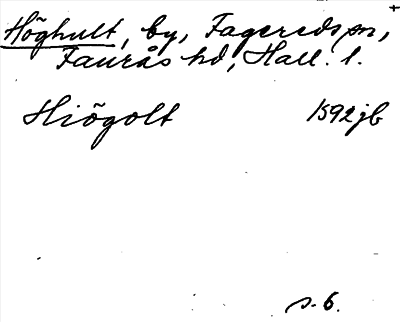 Höghult, by, Fagereds sn,
Faurås hd, Hall. l.
Hiögolt 1592 jb
s. 6.